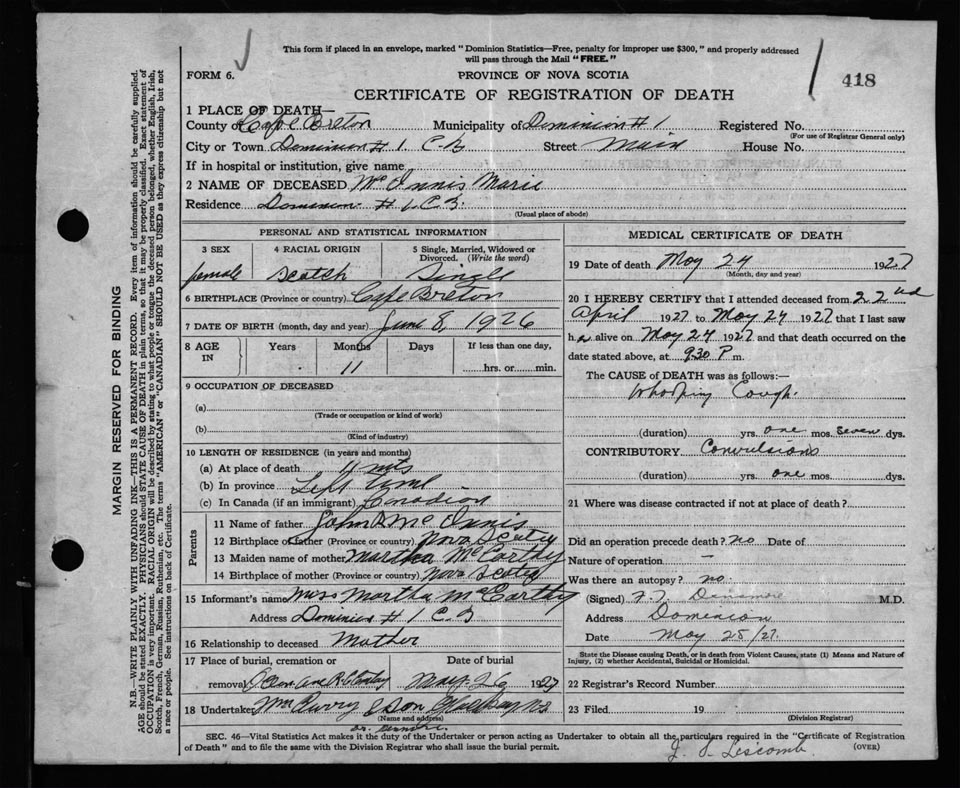 This form if placed in an envelope, marked "Dominion Statistics—Free, penalty for improper use $300," and properly addressed
will pass through the Mail "FREE."
FORM 6. PROVINCE OF NOVA SCOTIA 418
CERTIFICATE OF REGISTRATION OF DEATH
1 PLACE OF DEATH—
County of Cape Breton Municipality of Dominion # 1 Registered No.
(For use of Registrar General only)
City or Town Dominion # 1. C.B Street Main House No.
If in hospital or institution, give name
2 NAME OF DECEASED McInnis Marie
Residence Dominion # 1, C.B.
(Usual place of abode)
PERSONAL AND STATISTICAL INFORMATION
3 SEX 4 RACIAL ORIGIN 5 Single, Married, Widowed or Divorced. (Write the word)
female Scotch Single
6 BIRTHPLACE (Province or country) Cape Breton
7 DATE OF BIRTH (month, day and year) June 8, 1926
8 AGE IN Years Months Days If less than one day,
11 hrs. or min.
9 OCCUPATION OF DECEASED
(a)
(Trade or occupation or kind of work)
(b)
(Kind of industry)
10 LENGTH OF RESIDENCE (in years and months)
(a) At place of death 11 mts
(b) In province Left time
(c) In Canada (if an immigrant) Canadian
Parents
11 Name of father John D. McInnis
12 Birthplace of father (Province or country) Nova Scotia
13 Maiden name of mother Martha McCarthy
14 Birthplace of mother (Province or country) Nova Scotia
15 Informant's name Miss Martha McCarthy
Address Dominion # 1 C B
16 Relationship to deceased Mother
17 Place of burial, cremation or Date of burial
removal May 26 1927
18 Undertaker McCurry & Son Glace Bay N.S
(Name and address)
MEDICAL CERTIFICATE OF DEATH
19 Date of death May 24 1927
(Month, day and year)
20 I HEREBY CERTIFY that I attended deceased from 22nd
April 1927 to May 24 1927 that I last saw
her alive on May 24 1927 and that death occurred on the
date stated above, at 9.30 P m.
The CAUSE of DEATH was as follows:—
Whooping Cough.
(duration) yrs. one mos. seven dys.
CONTRIBUTORY Convulsions
(duration) yrs. one mos. dys.
21 Where was disease contracted if not at place of death?
Did an operation precede death? no Date of
Nature of operation —
Was there an autopsy? no.
(Signed) M.D.
Address Dominion
Date May 25/27.
State the Disease causing Death, or in death from Violent Causes, state (1) Means and Nature of
Injury, (2) whether Accidental, Suicidal or Homicidal.
22 Registrar's Record Number
23 Filed 19
(Division Registrar)
SEC. 46—Vital Statistics Act makes it the duty of the Undertaker or person acting as Undertaker to obtain all the particulars required in the "Certificate of Registration
of Death" and to file the same with the Division Registrar who shall issue the burial permit. (OVER)
J. S. Lescomb.
MARGIN RESERVED FOR BINDING
N.B.—WRITE PLAINLY WITH UNFADING INK—THIS IS A PERMANENT RECORD. Every item of information should be carefully supplied.
AGE should be stated EXACTLY. PHYSICIANS should STATE CAUSE OF DEATH in plain terms, so that it may be properly classified. Exact statement of
OCCUPATION is very important. RACIAL ORIGIN will be described by stating to what people or tongue the deceased person belonged, whether English, Irish,
Scotch, French, German, Russian, Ruthenian, etc. The terms "AMERICAN" or "CANADIAN" SHOULD NOT BE USED as they express citizenship but not
a race or people. See instructions on back of Certificate.